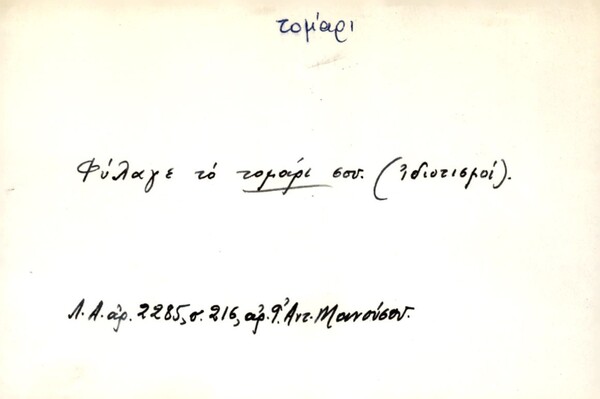 τομάρι
Φύλαγε τό τομάρι σου. (ἰδιωτισμοί).
Λ.Α. ἀρ. 2285, σ. 216, ἀρ. 9. Ἀντ. Μανούσου.